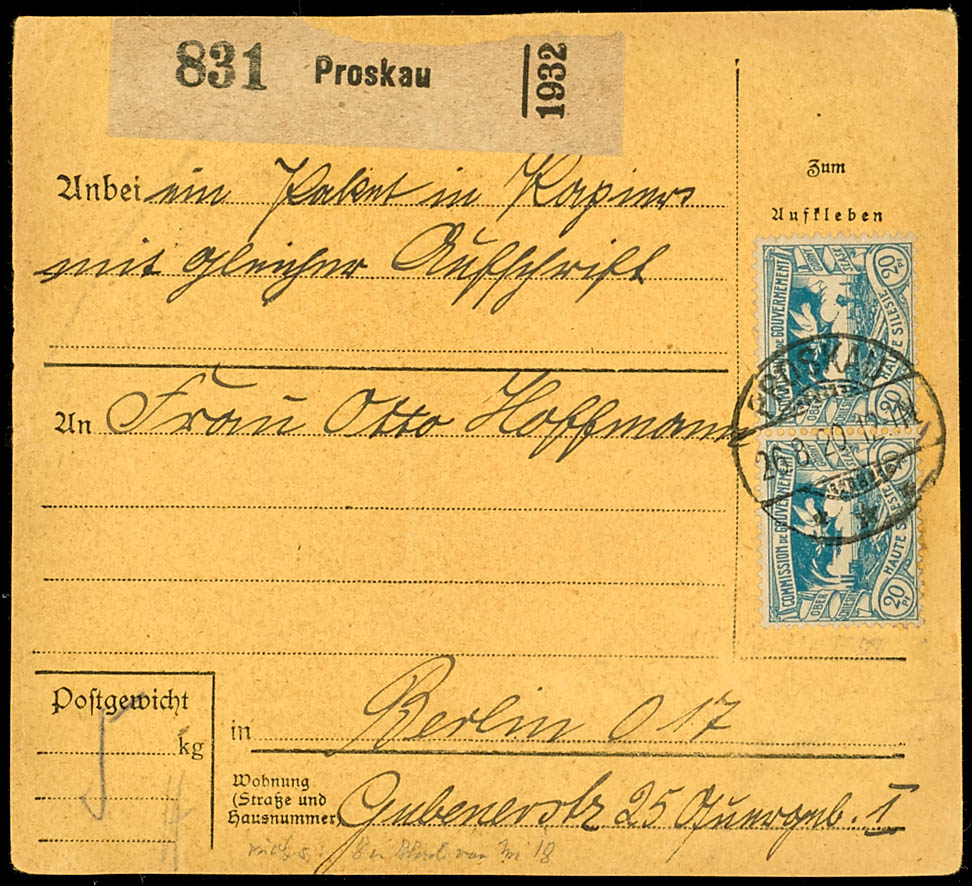 831 Proskau 1932
Zum
Aufkleben
Anbei ein Paket in Papier
mit gleicher Aufschrift
An Frau Otto Hoffmann
COMMISSION DE GOUVERNEMENT HAUTE SILESIE 20 20
PROSKAU
26.8.20.
COMMISSION DE GOUVERNEMENT HAUTE SILESIE OBER 20 Pf
Postgewicht
kg
in Berlin O 17
Wohnung
(Straße und
Hausnummer)
Gubenerstr 25 Quergb. I